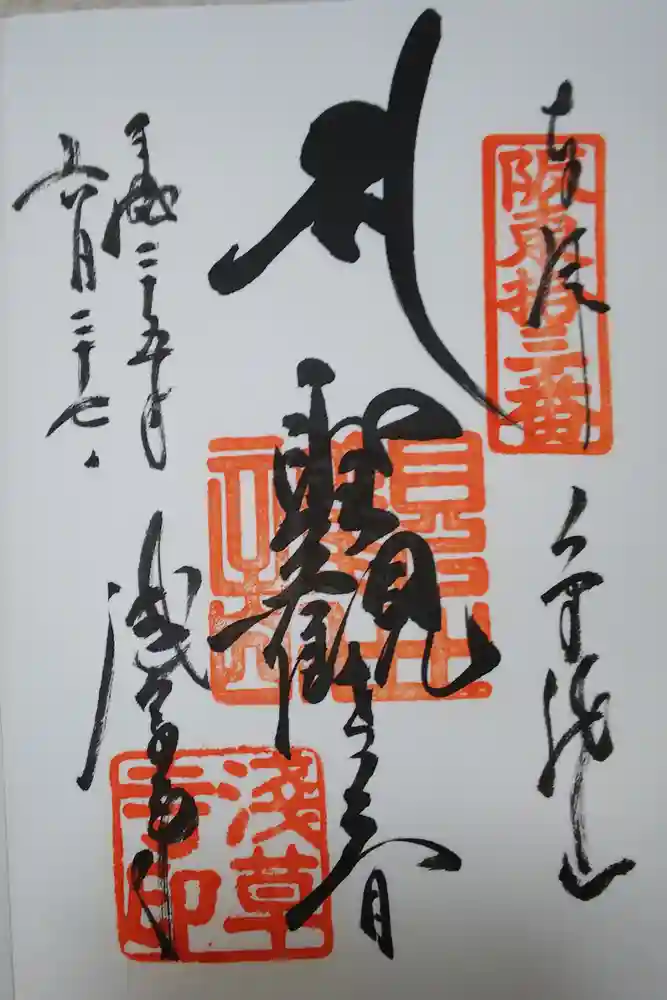 奉拝
阪東拾三番
金龍山
聖観世音
浅草寺
浅草寺印
平成二十五年
六月二十七日